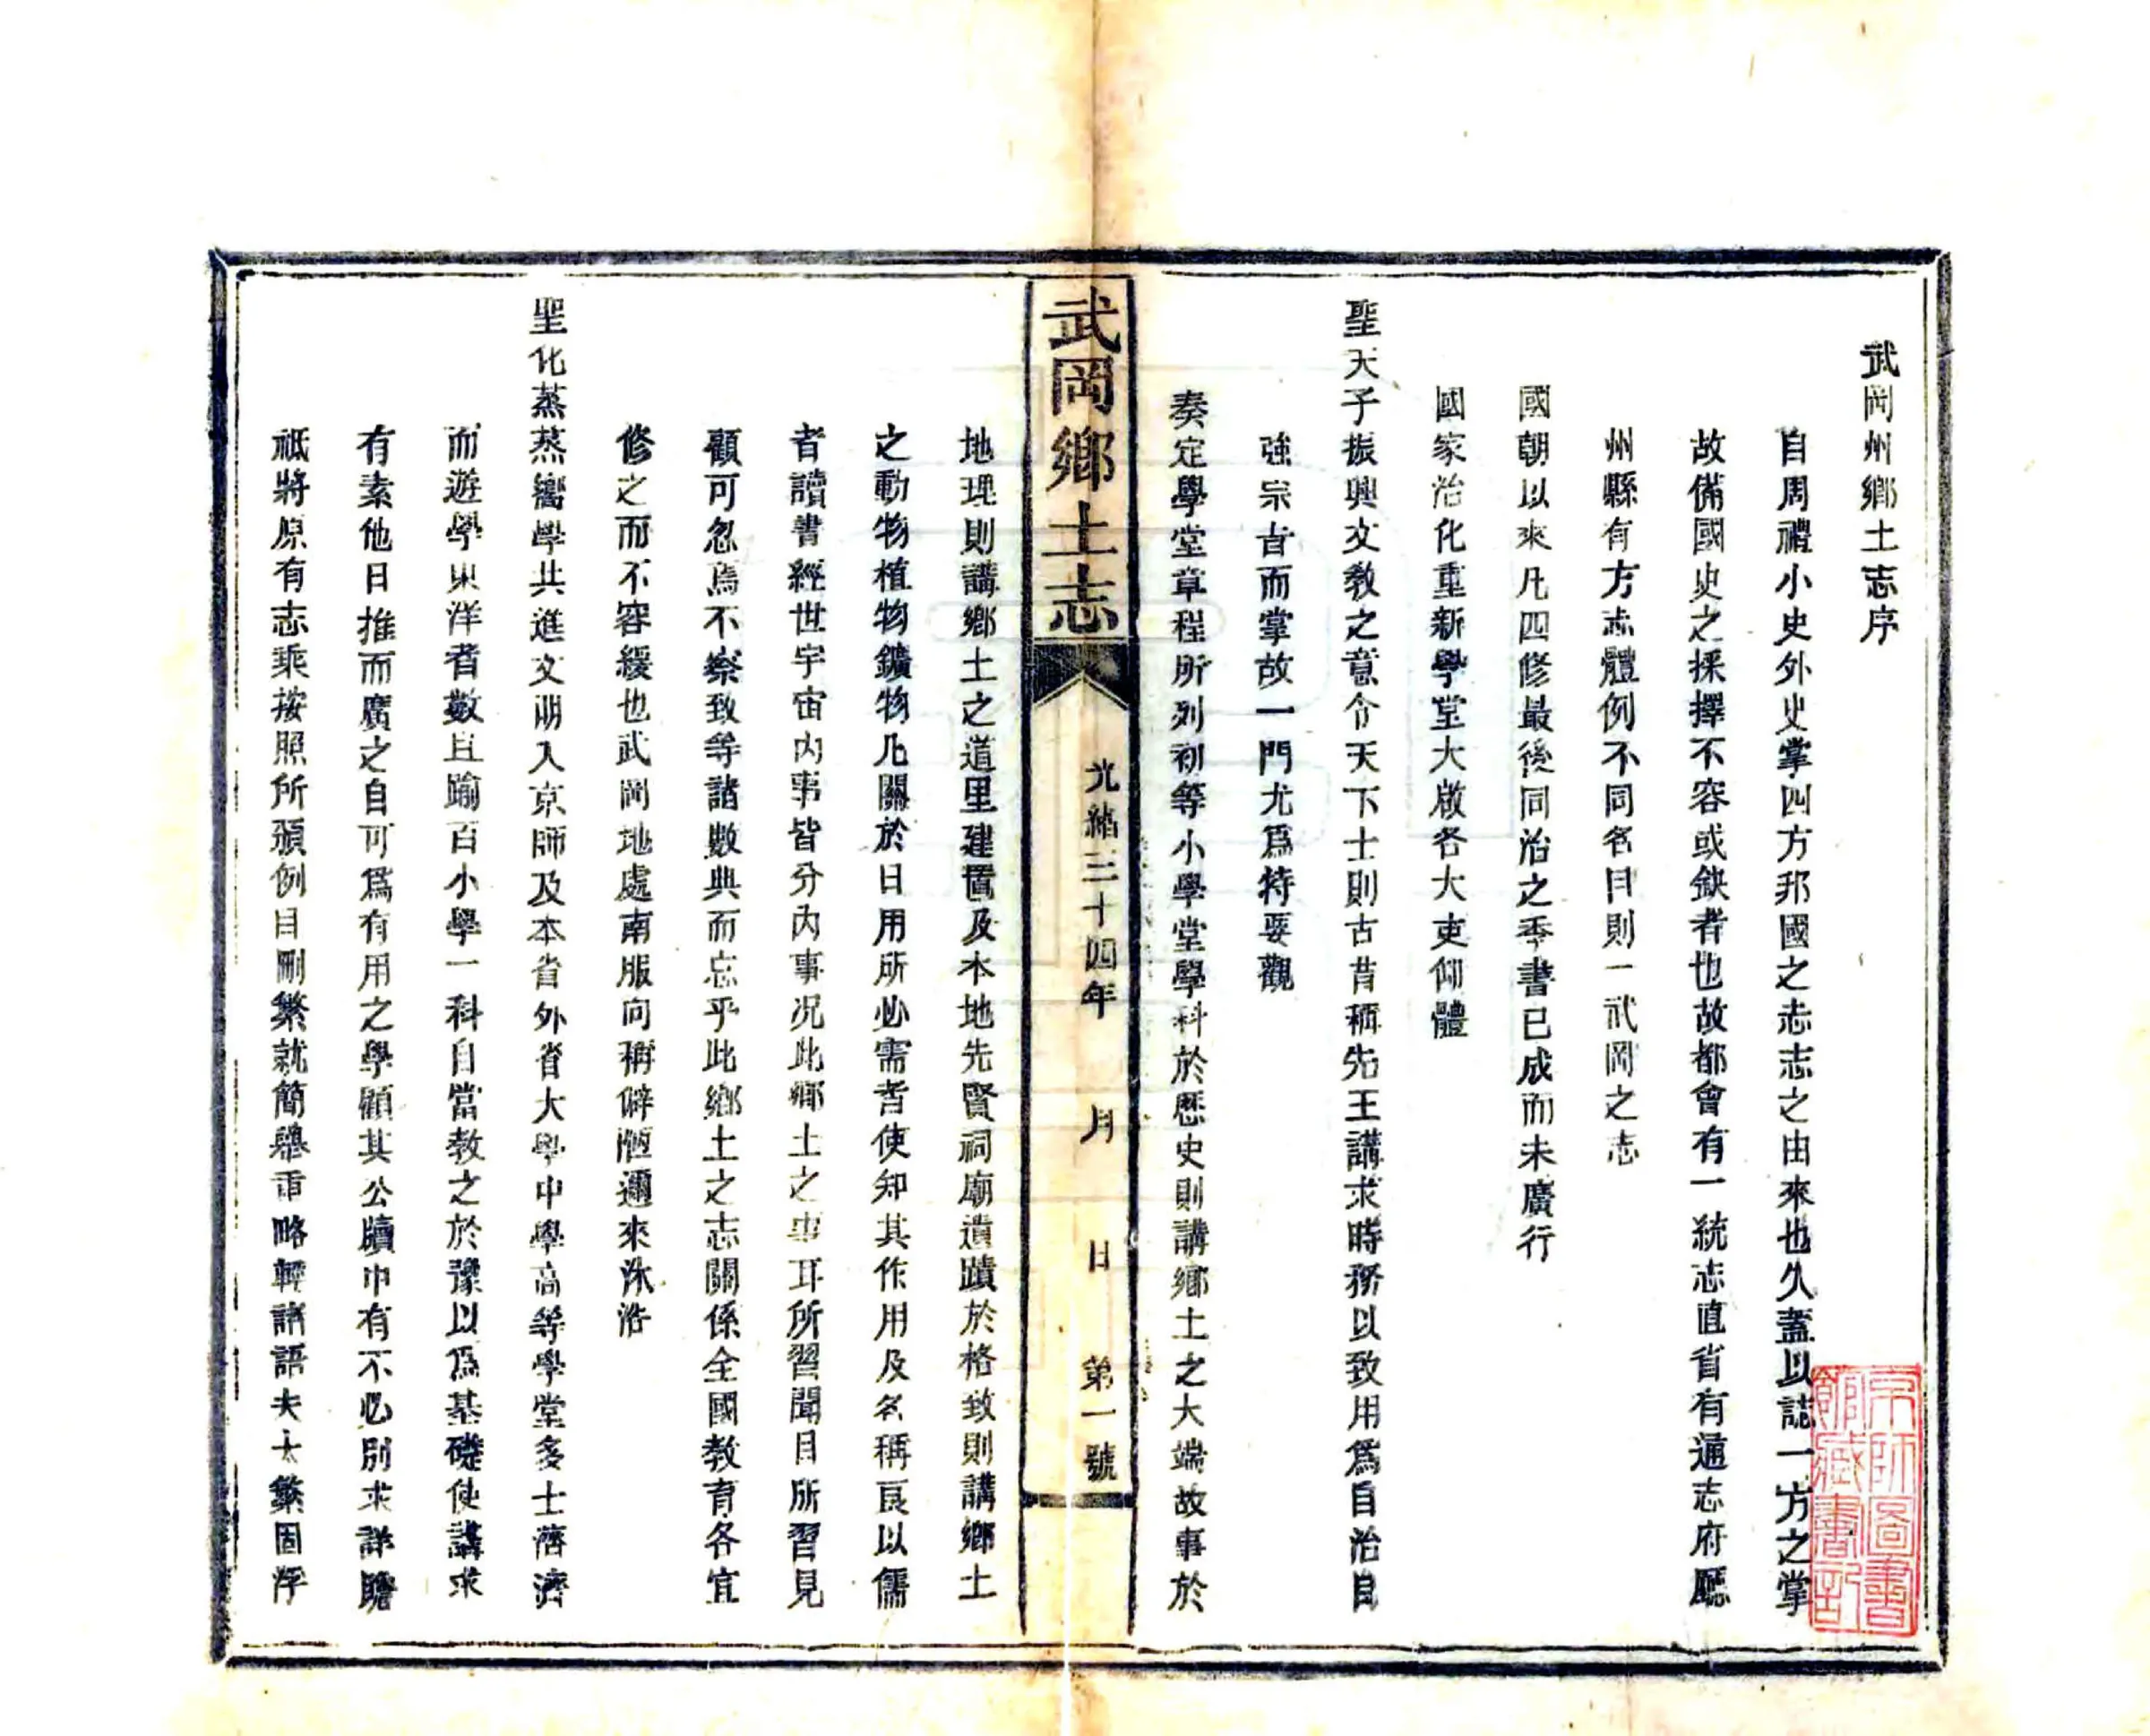 武岡州鄉土志序
自周禮小史外史掌四方邦國之志志之由來也久蓋以誌一方之掌
故備國史之採擇不容或缺者也故都會有一統志直省有通志府廳
州縣有方志體例不同名目則一武岡之志
國朝以來凡四修最後同治之季書已成而未廣行
國家治化重新學堂大啟各大吏仰體
聖天子振興文教之意令天下士則古昔稱先王講求時務以致用爲自治自
強宗旨而掌故一門尤爲特要觀
奏定學堂章程所列初等小學堂學科於歷史則講鄉土之大端故事於
武岡鄉土志
光緒三十四年 月 日 第一號
地理則講鄉土之道里建置及本地先賢祠廟遺蹟於格致則講鄉土
之動物植物鑛物凡關於日用所必需者使知其作用及名稱良以儒
者讀書經世宇宙內事皆分內事况此鄉土之事耳所習聞目所習見
顧可忽焉不察致等諸數典而忘乎此鄉土之志關係全國教育各宜
修之而不容緩也武岡地處南服向稱僻陋邇來沐浴
聖化蒸蒸嚮學共進文明入京師及本省外省大學中學高等學堂多士濟濟
而遊學東洋者數且踰百小學一科自當教之於豫以爲基礎使講求
有素他日推而廣之自可爲有用之學顧其公牘中有不必別求詳贍
祗將原有志乘按照所頒例目刪繁就簡舉重略輕諸語夫太繁固浮
京師圖書館藏書記